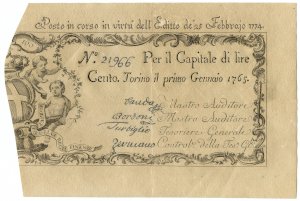 Posto in corso in virtù dell'Editto de' 25 Febbrajo 1774.
N.° 21966 Per il Capitale di lire
Cento. Torino il primo Gennaio 1765.
Mastro Auditore
Mastro Auditore
Tesoriere Generale
Control.e della Tes.a G.le